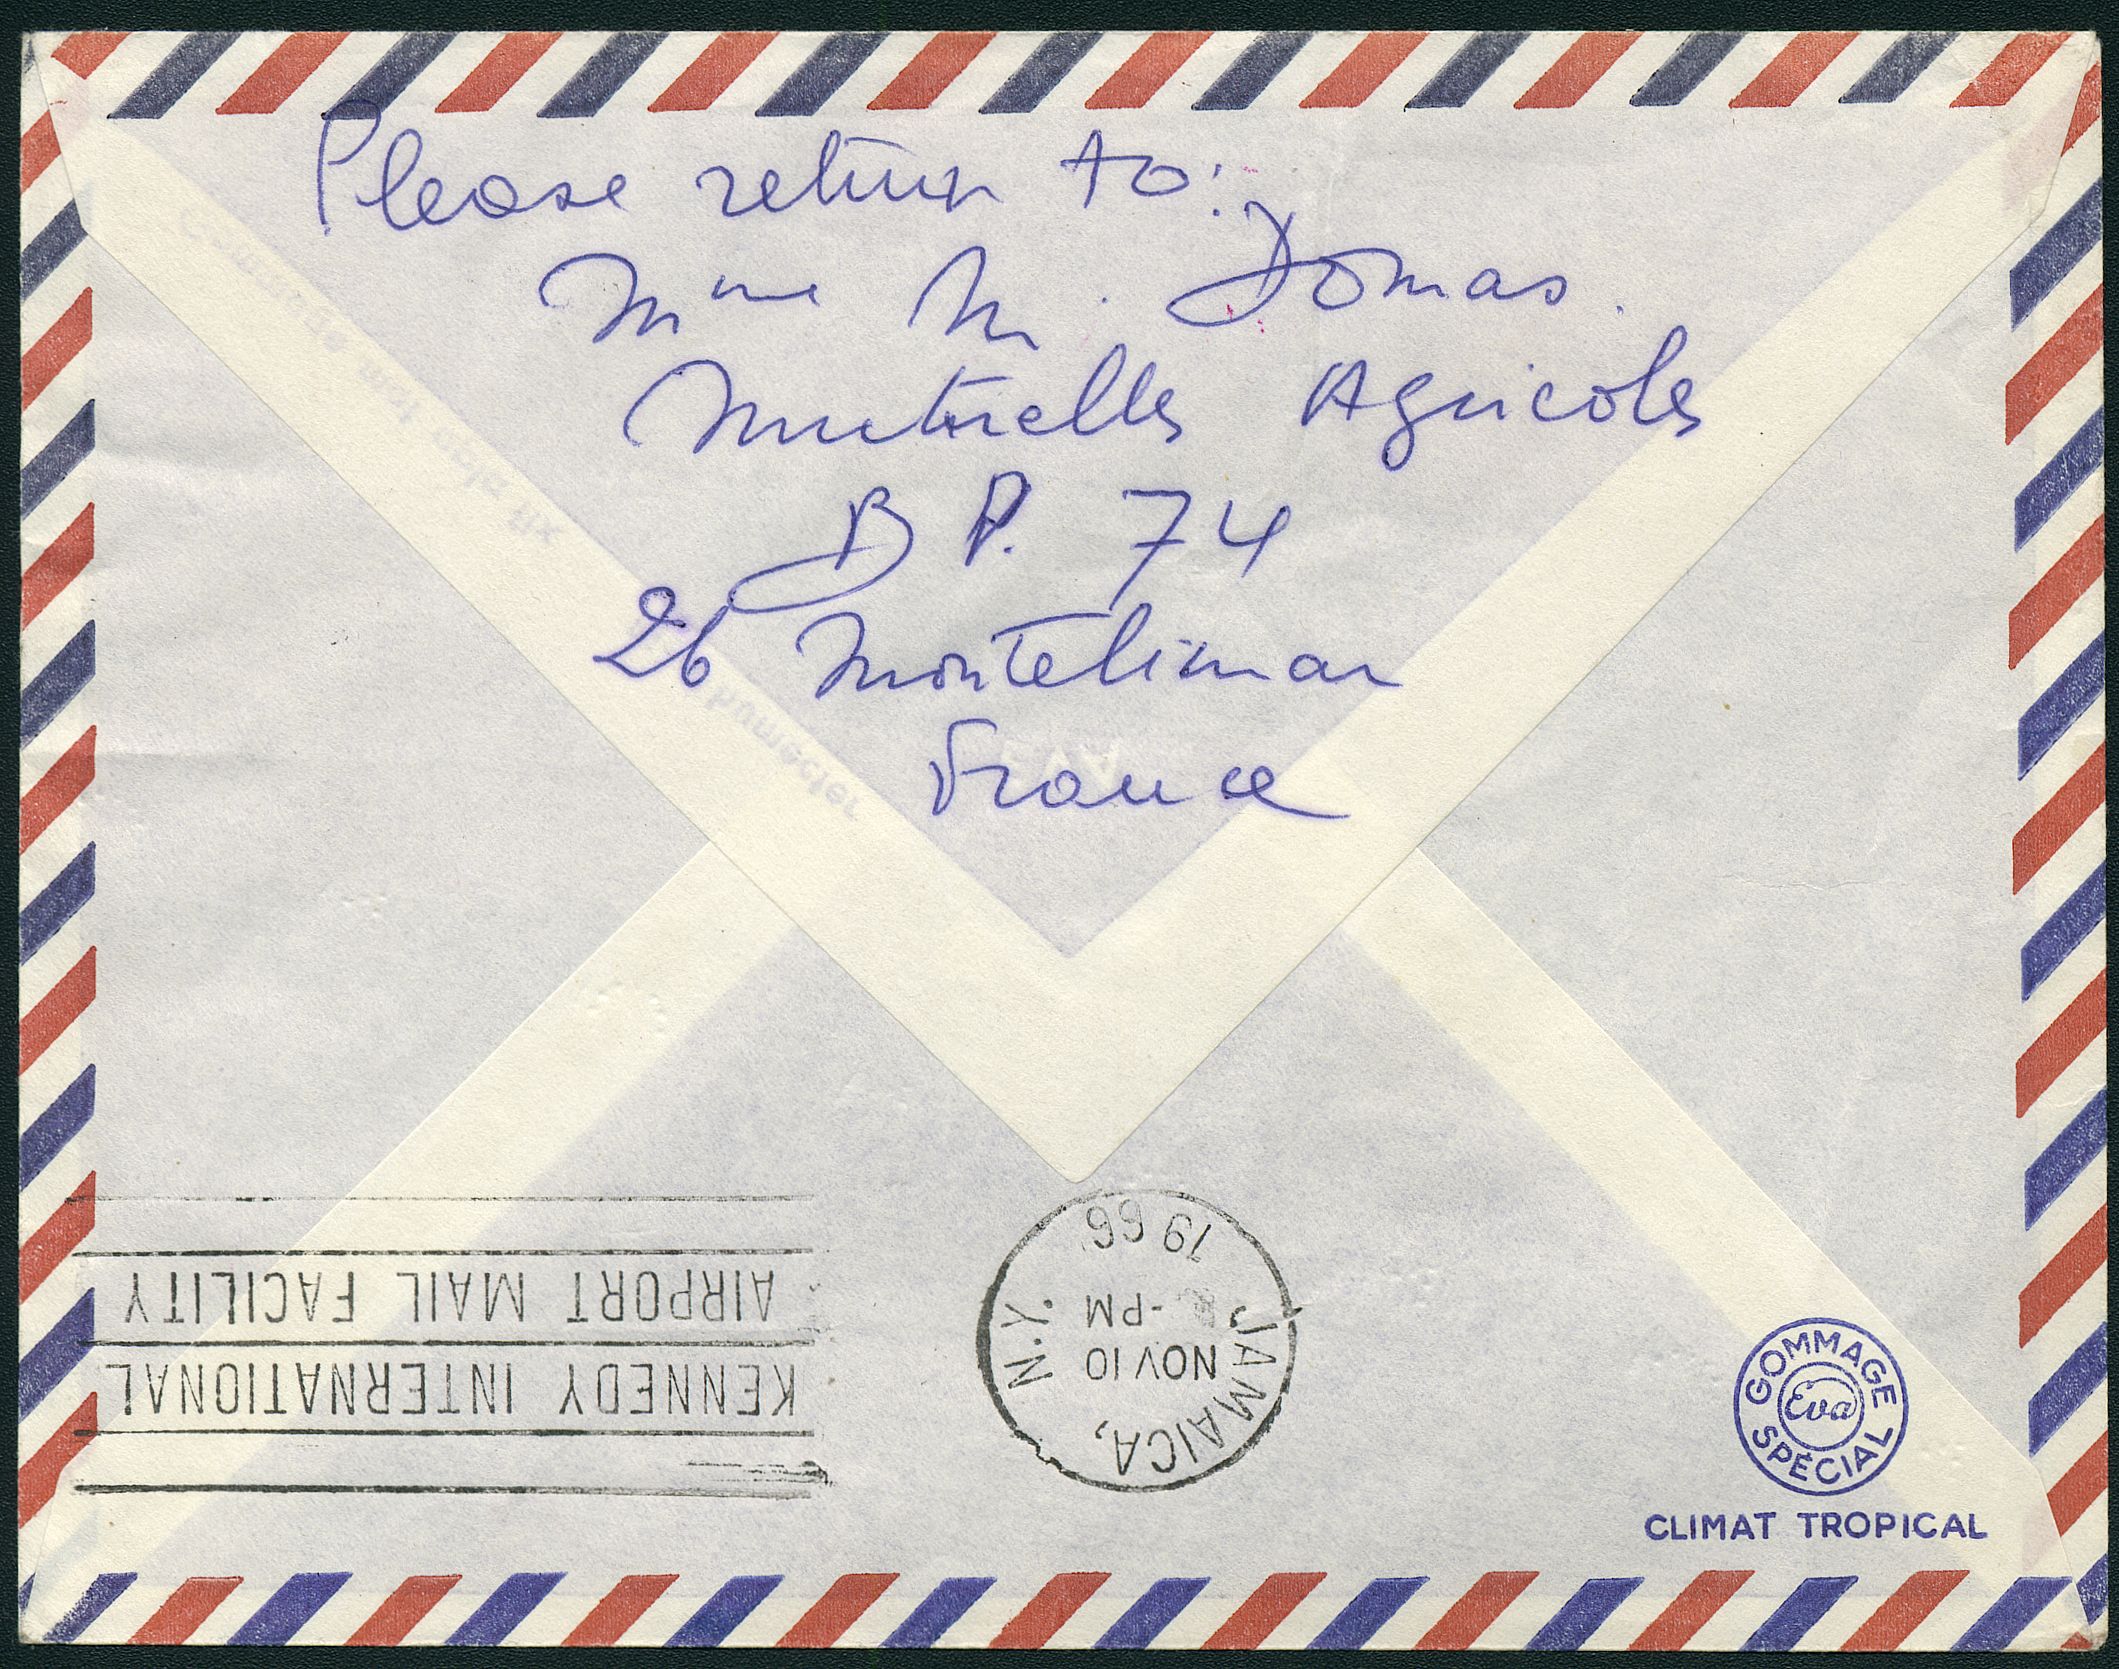 Please return to:
Mme M. Domas.
Mutuelles Agricoles
B P. 74
26 Montelimar
France
JAMAICA, N.Y.
NOV 10
-PM
1966
KENNEDY INTERNATIONAL
AIRPORT MAIL FACILITY
GOMMAGE
Eva
SPÉCIAL
CLIMAT TROPICAL
humecter
EVA